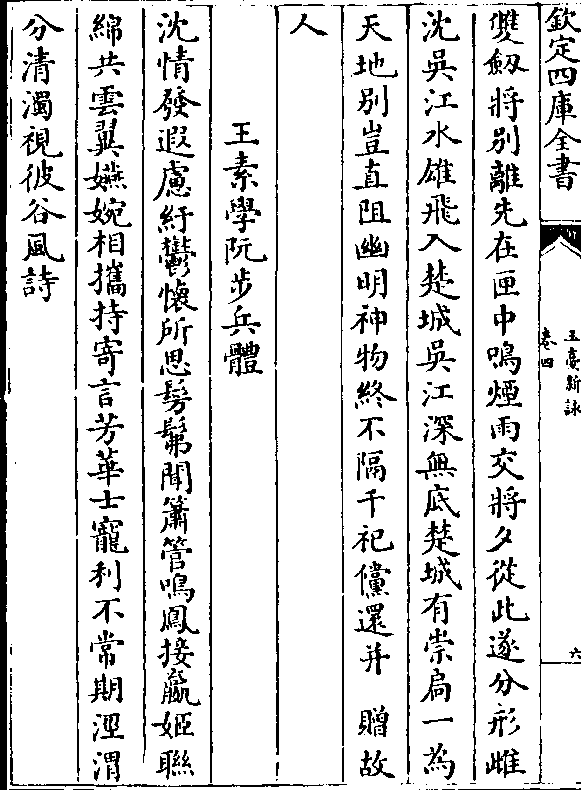 欽定四庫全書
玉臺新詠
卷四
六
雙劔將别離先在匣中鳴煙雨交將夕從此遂分形雌
沈吳江水雄飛入楚城吳江深無底楚城有崇扄一為
天地别豈直阻幽明神物終不隔千祀儻還并　贈故
人
王素學阮步兵體
沈情發遐慮紆鬱懷所思髣髴聞簫管鳴鳳接嬴姬聯
綿共雲翼嬿婉相攜持寄言芳華士寵利不常期涇渭
分清濁視彼谷風詩